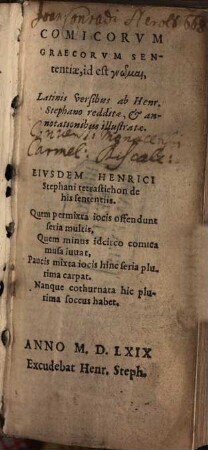 COMICORVM
GRAECORVM SEN-
tentiæ, id est γνῶμαι,
Latinis versibus ab Henr.
Stephano redditæ, & an-
notationibus illustratæ.
Carmel:
EIVSDEM HENRICI
Stephani tetrastichon de
his sententiis.
Quem permixta iocis offendunt
seria multis,
Quem minus idcirco comica
musa iuuat,
Paucis mixta iocis hinc seria plu-
rima carpat.
Nanque cothurnata hic plu-
rima soccus habet.
ANNO M. D. LXIX
Excudebat Henr. Steph.